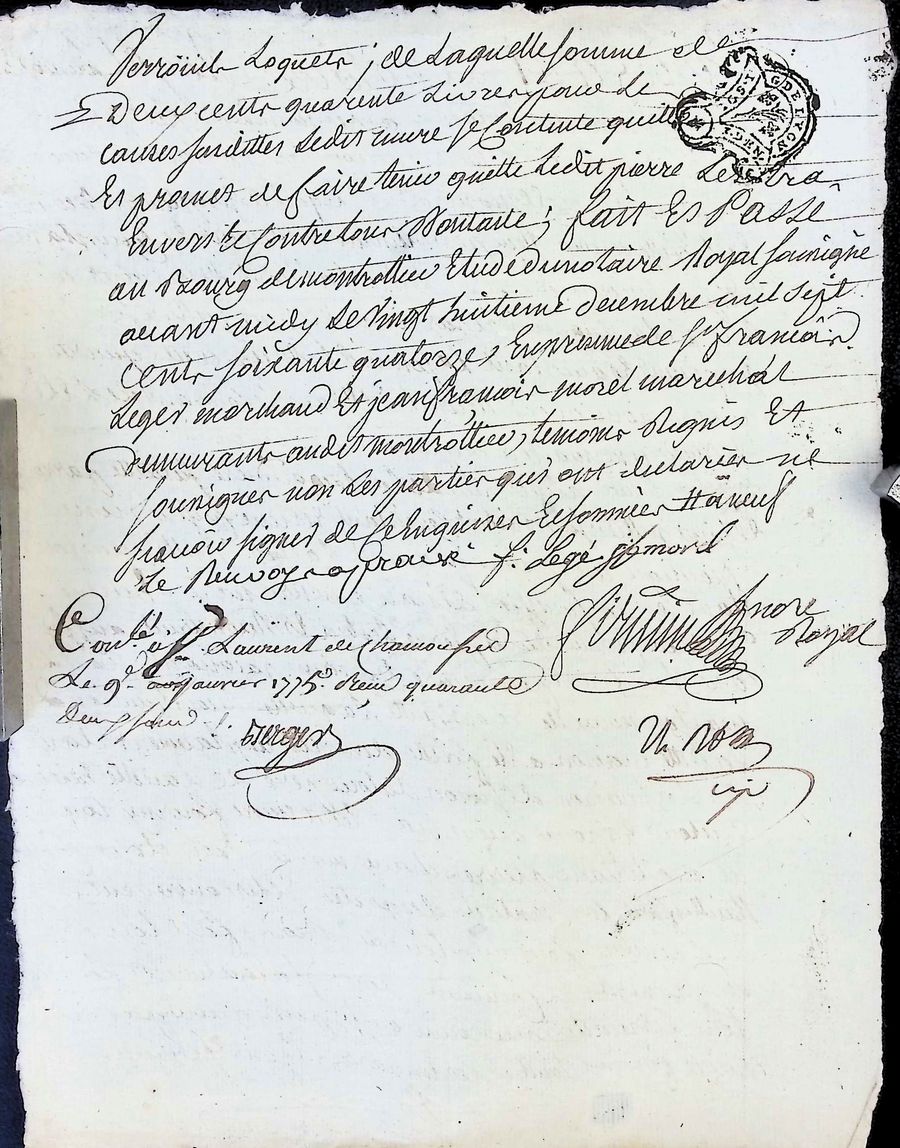 Verrouils Loquets ; de Laquelle somme de
Deux cents quarente Livres pour Les
causes susdittes Ledit mure se Contente quitte
Et promet de faire tenir quitte Ledit pierre
Envers Et Contre tous ; fait Et Passé
au Bourg de montrottier Etude du notaire Royal sousigné
avant midy Le vingt huitieme Decembre mil sept
Cents soixante quatorze, En presence de Sr François
Leger marchand Et jean françois morel marechal
Demeurants audit montrottier, temoins Requis Et
sousignés non Les parties qui ont declarées ne
sçavoir signer de Ce Enquises Et sommées
Le Renvoy approuvé f. Legé jf morel
Royal
Conlé à St Laurent de Chamousset
Le 9e janvier 1775. Reçu quarante
Deux sous
G DE LYON
DEN